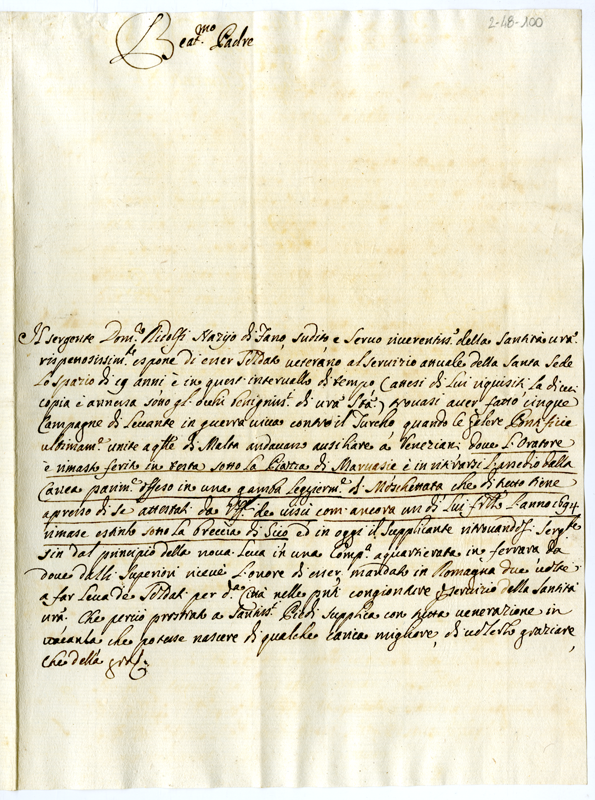 2-48-100
Beat.mo Padre
Il sergente Dom.co Ridolfi Nazijo di Fano, sudito e servo riverentis.o della Santità vra.
rispettosissim.te espone di esser soldato veterano al servizio attuale della Santa Sede
Lo spazio di 19 anni è in quest'intervallo di tempo
copia è annessa sotto gl'occhi benigniss.i di vra Stà.) trovasi aver fatto cinque
Campagne di Levante in guerra viva contro il Turcho quando le Galere Pontificie
ultimam.e unite a qlle di Malta andavano ausiliare a' Veneziani dove l'Oratore
è rimasto ferito in testa sotto la Piazza di Marvasie è in ritirarsi
Canea parim.e offeso in una gamba leggierm.e di Moschettata che di tutto tiene
apresso di se attestati da Uff.li de visu com'ancora un di Lui frllo l'anno 1694
rimase estinto sotto la breccia di Scio ed in oggi il Supplicante ritrovandosi Serg.te
sin dal principio della nova Leva in una Comp.a aquartierata in ferrara da
dove dalli Superiori riceve l'onore di esser mandato in Romagna due volte
a far Leva de Soldati per d.a Città nelle pnti congionture servizio della Santità
vra. Che perciò prostrato a' Santiss.i Piedi supplica con tutta venerazione in
vacanza che potesse nascere di qualche carica migliore, di volerlo graziare,
che della gra.